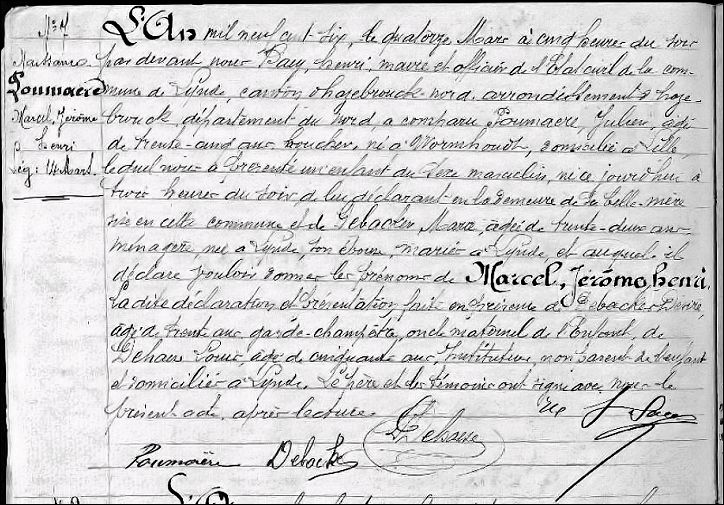 N° 7
Naissance
Poumaëre
Marcel, Jérôme
Henri
Lég: 14 Mars
L'An mil neuf cent six, le quatorze Mars à cinq heures du soir
par devant nous henri, maire et officier de l'Etat civil de la com-
mune de Lynde, canton d'hazebrouck-nord, arrondissement d'haze-
brouck, département du Nord, a comparu Poumaere, Julien, âgé
de trente-cinq ans, boucher, né à Wormhoudt, domicilié à Lille,
lequel nous a présenté un enfant du sexe masculin, né ce jourd'hui à
trois heures du soir de lui déclarant en la demeure de sa belle-mère
sise en cette commune et de Debacker, Marie, âgée de trente-deux ans
ménagère, née à Lynde, son épouse, mariés à Lynde, et auquel il
déclare vouloir donner les prénoms de Marcel, Jérôme, henri.
La dite déclaration et présentation faite en présence de Debacker Désiré,
âgé de trente ans, garde-champêtre, oncle maternel de l'Enfant, de
Dehaene Louis, âgé de cinquante ans, Instituteur, non parent de l'enfant
et domiciliés à Lynde. Le père et les témoins ont signé avec nous le
présent acte, après lecture.
Poumaëre Debacker Dehaene
L'An